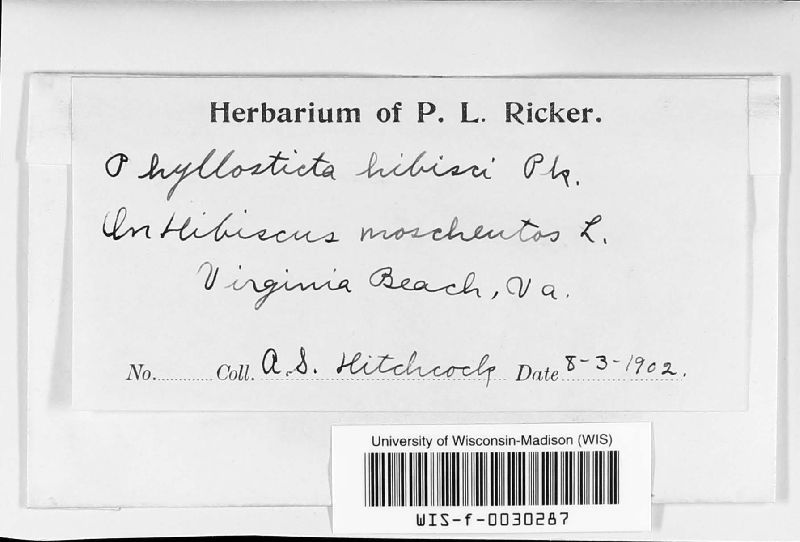 Herbarium of P. L. Ricker.
Phyllosticta hibisci Pk.
On Hibiscus moscheutos L.
Virginia Beach, Va.
No. Coll. A.S. Hitchcock Date 8-3-1902.
University of Wisconsin-Madison (WIS)
WIS-f-0030287